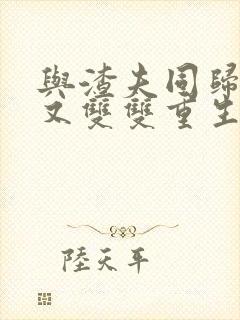 與渣夫同歸
又雙雙重生
陸天平